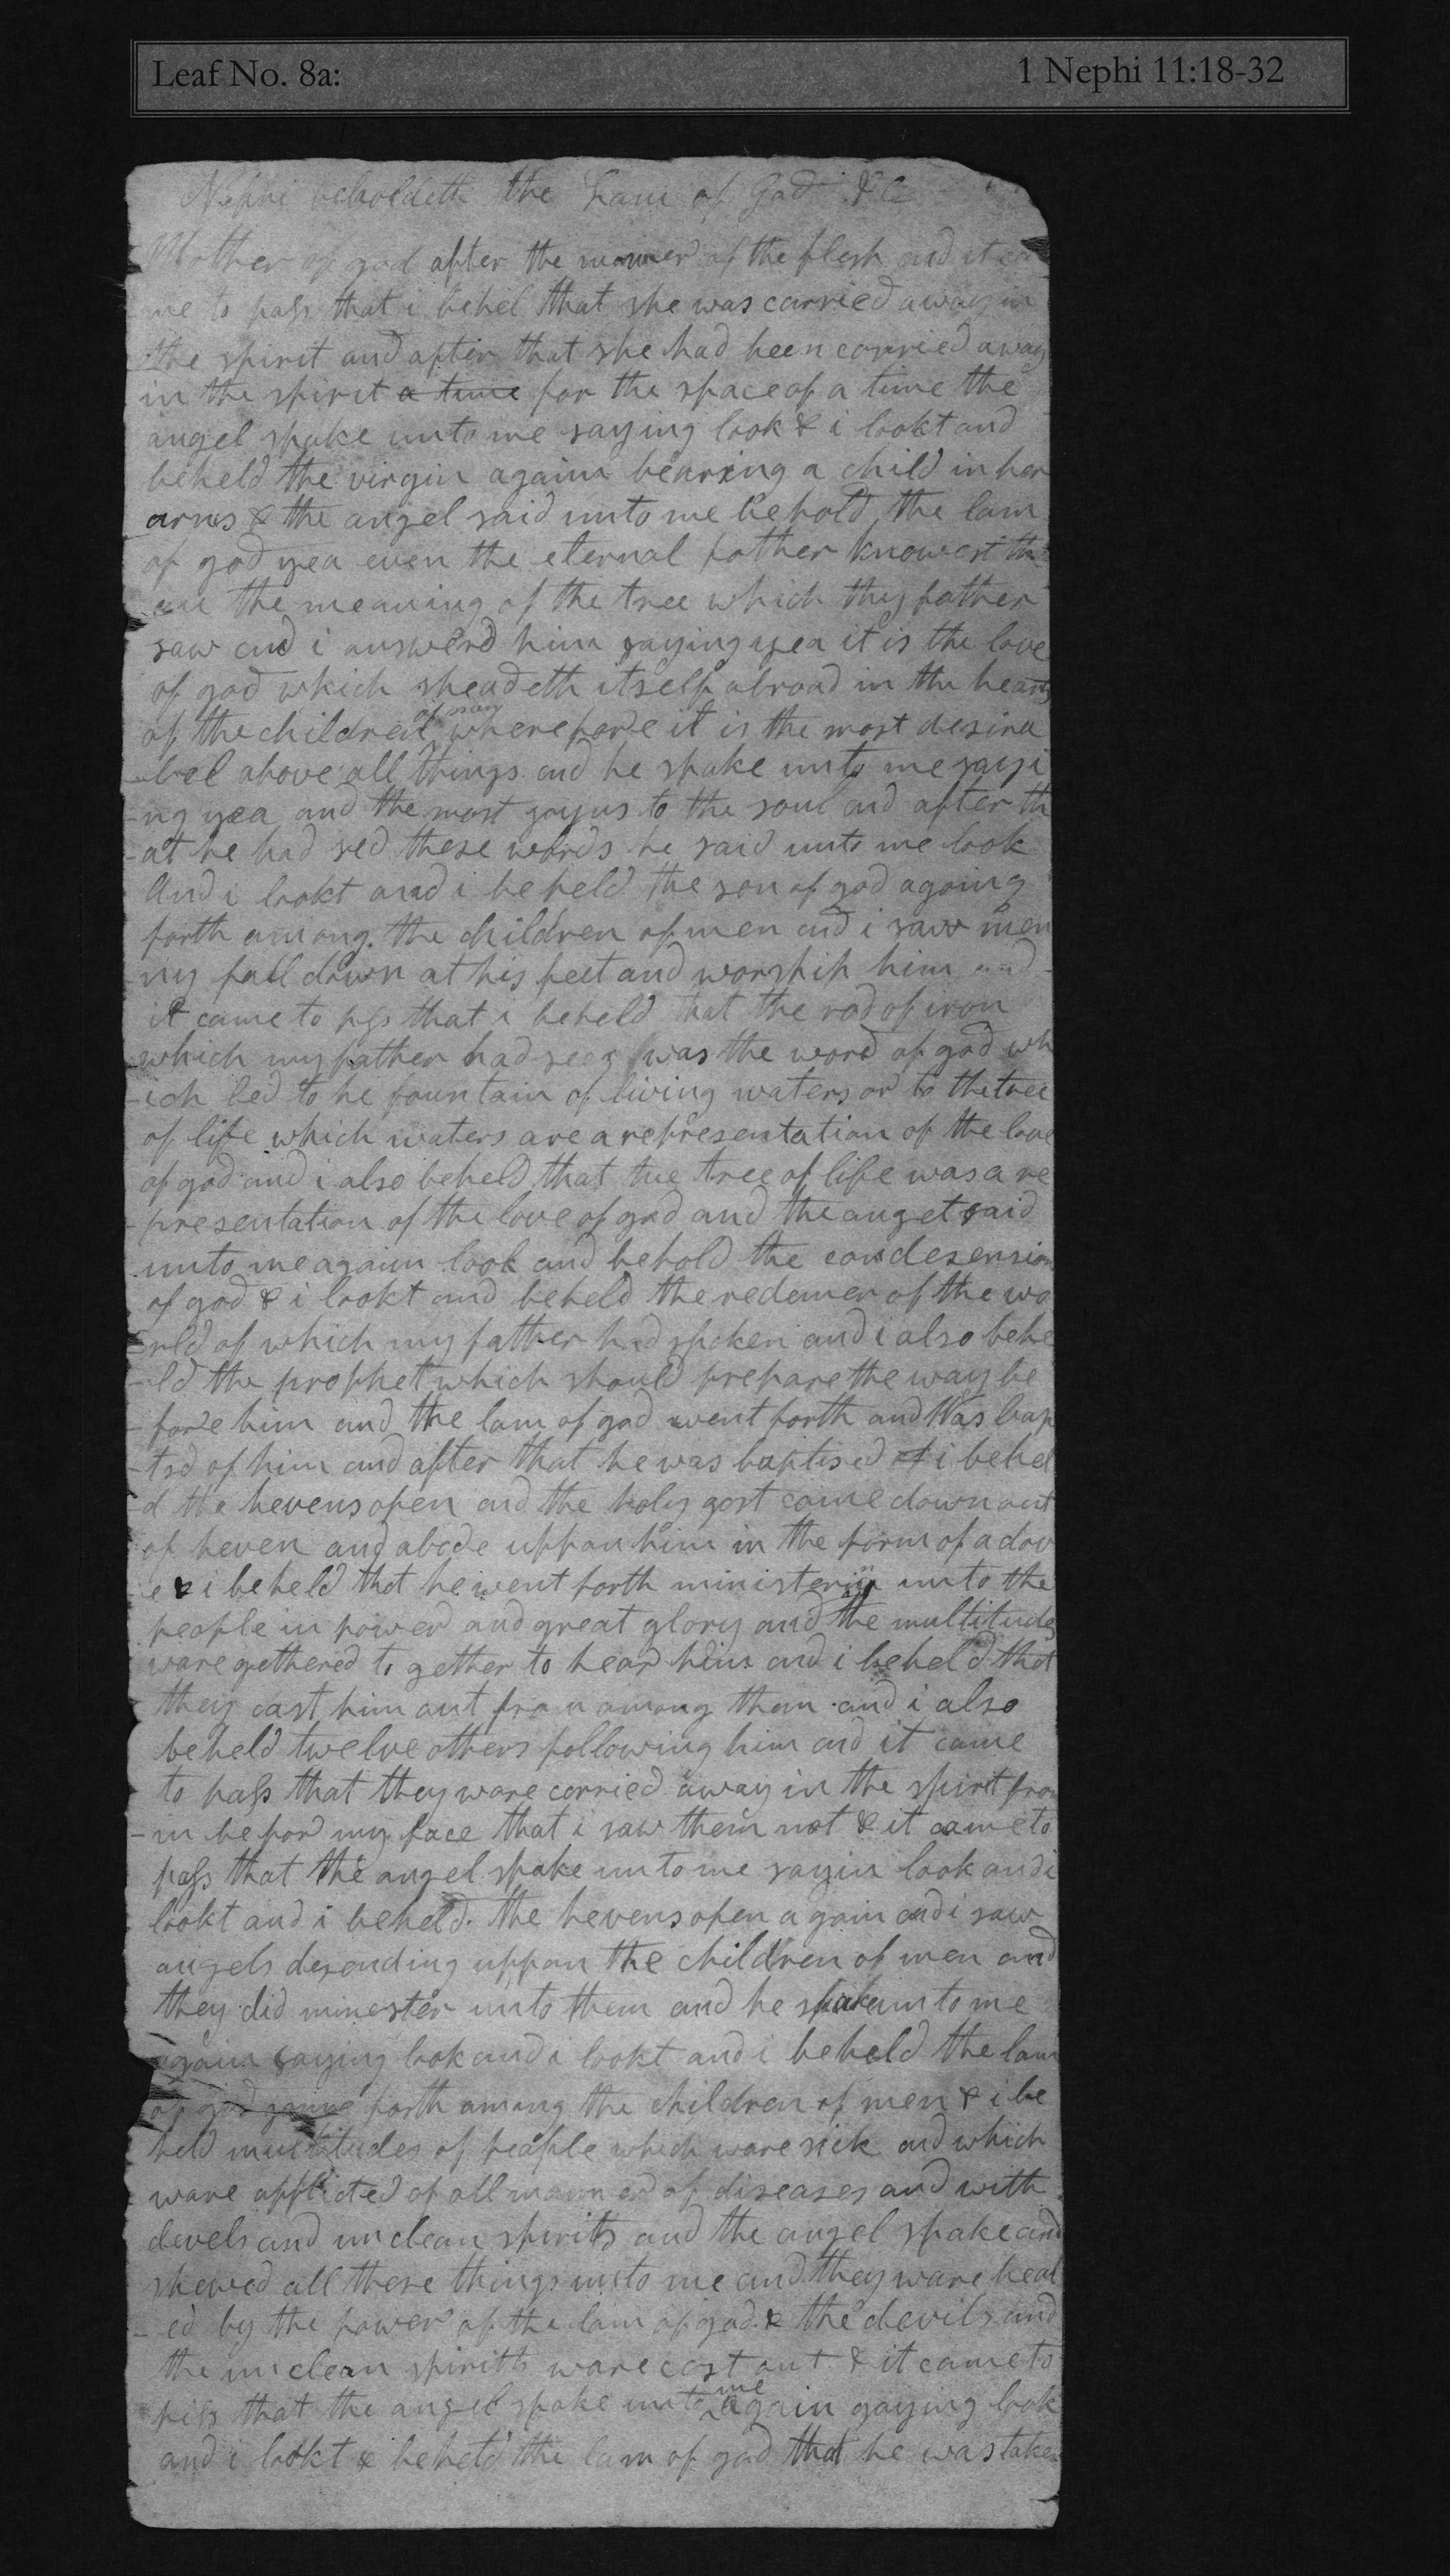 Leaf No. 8a: 1 Nephi 11:18-32
Nephi beholdeth the Lam of God &C
Mother of god after the manner of the flesh and it ca
me to pass that i behel that she was carried away in
the spirit and after that she had been carried away
in the spirit a time for the space of a time the
angel spake unto me saying look & i lookt and
beheld the virgin again bearing a child in her
arms & the angel said unto me behold the lam
of god yea even the eternal father knowest th
ou the meaning of the tree which thy father
saw and i answerd him saying yea it is the love
of god which sheadeth itself abroad in the hearts
of the children of men wherefore it is the most desira
-bel above all things and he spake unto me sayi
-ng yea and the most joyus to the soul and after th
-at he had sed these words he said unto me look
And i lookt and i beheld the son of god agoing
forth among the children of men and i saw men
ny fall down at his feet and worship him and
it came to pass that i beheld that the rod of iron
which my father had seen was the word of god wh
-ich led to he fountain of living waters or to the tree
of life which waters are a representation of the love
of god and i also beheld that the tree of life was a re
-presentation of the love of god and the angel said
unto me again look and behold the condesension
of god & i lookt and beheld the redemer of the wo
-rld of which my father had spoken and i also behe
-ld the prophet which should prepare the way be
-fore him and the lam of god went forth and Was bap
-tsd of him and after that he was baptised i behel
d the hevens open and the holy gost come down out
of heven and abode uppon him in the form of a dov
e & i beheld that he went forth ministering unto the
people in power and great glory and the multitudes
ware gethered to gether to hear him and i beheld that
they cast him out from among them and i also
beheld twelve others following him and it came
to pass that they ware carried away in the spirit fro
-m befor my face that i saw them not & it came to
pass that the angel spake unto me sayin look and i
lookt and i beheld the hevens open again and i saw
angels desending uppon the children of men and
they did minester unto them and he spake unto me
again saying look and i lookt and i beheld the lam
of god going forth among the children of men & i be
held multitudes of people which ware sick and which
ware afflicted of all manner of diseases and with
devels and unclean spirits and the angel spake and
shewed all these things unto me and they ware heal
-ed by the power of the lam of god & the devils and
the unclean spirits ware cast out & it came to
pass that the angel spake unto me again saying look
and i lookt & beheld the lam of god that he was taken